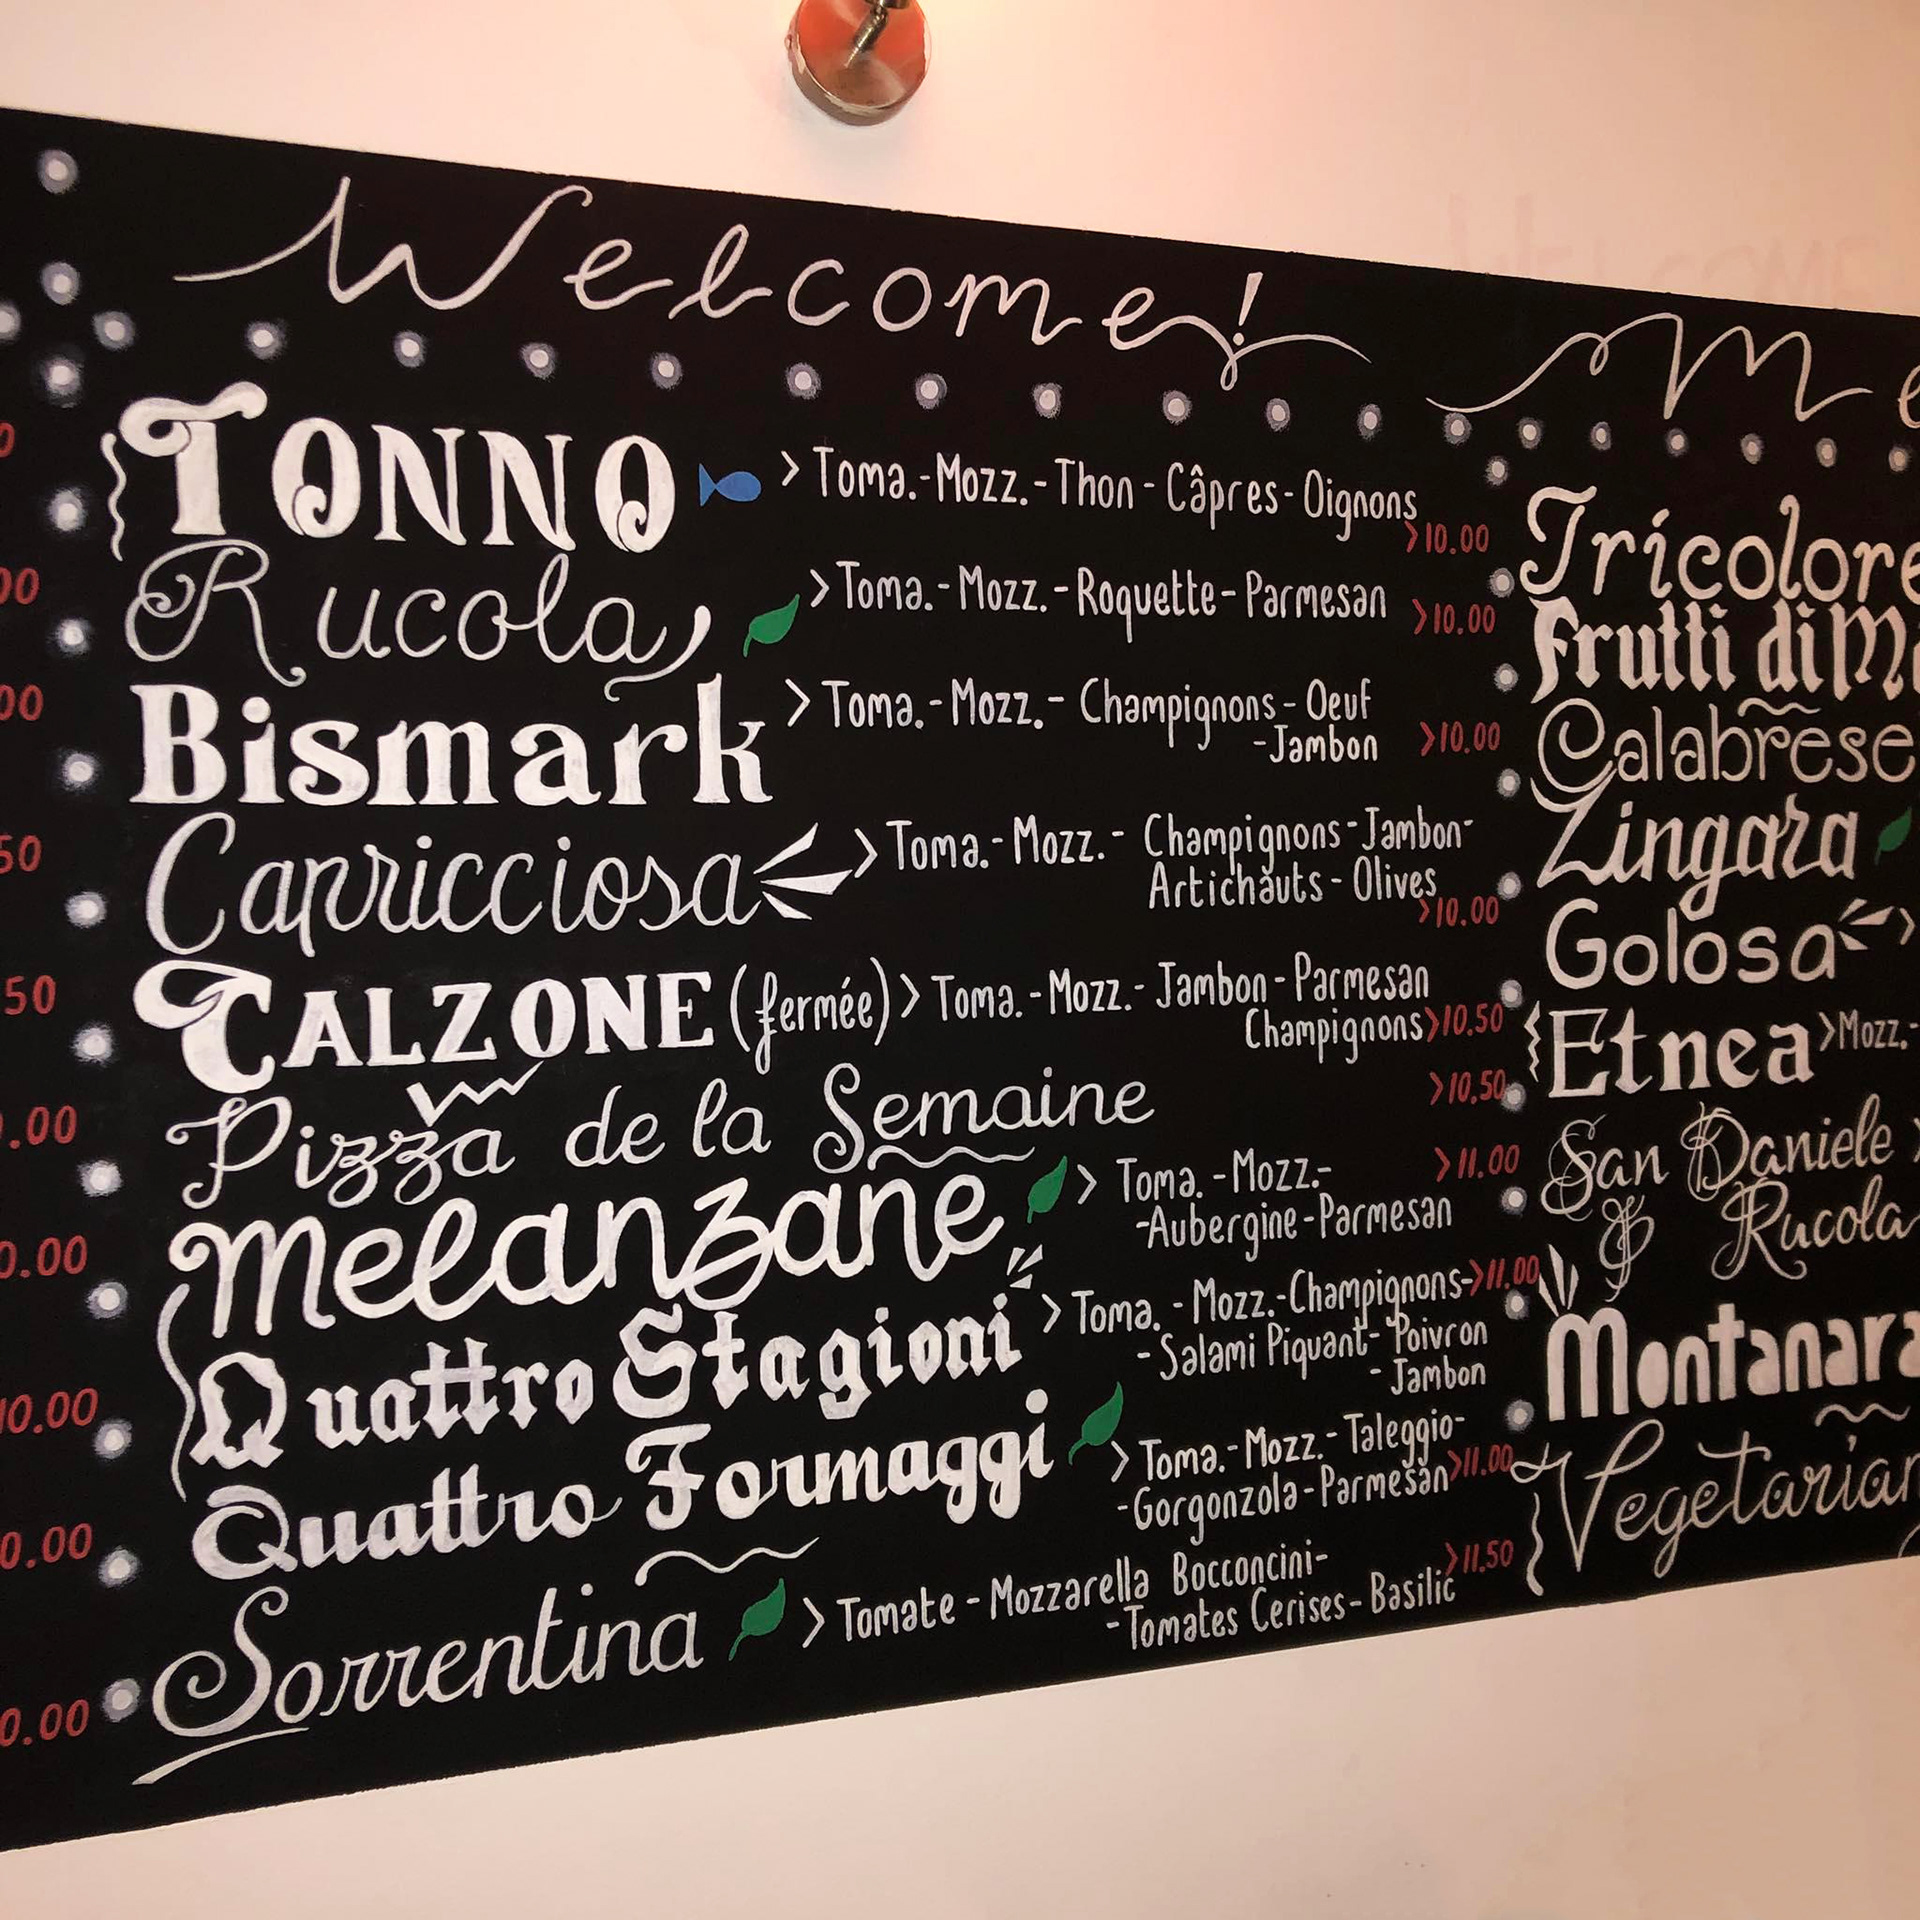 Welcome!
TONNO > Toma.-Mozz.-Thon-Câpres-Oignons
>10.00
Rucola > Toma.-Mozz.-Roquette-Parmesan
>10.00
Bismark > Toma.-Mozz.-Champignons-Oeuf
-Jambon >10.00
Capricciosa > Toma.-Mozz.-Champignons-Jambon-
Artichauts-Olives
>10.00
CALZONE (fermée) > Toma.-Mozz.-Jambon-Parmesan
Champignons >10.50
Pizza de la Semaine >10.50
Melanzane > Toma.-Mozz.- >11.00
-Aubergine-Parmesan
Quattro Stagioni > Toma.-Mozz.-Champignons- >11.00
-Salami Piquant-Poivron
-Jambon
Quattro Formaggi > Toma.-Mozz.-Taleggio-
-Gorgonzola-Parmesan >11.00
Sorrentina > Tomate-Mozzarella Bocconcini- >11.50
-Tomates Cerises-Basilic
Tricolore
Frutti di
Calabrese
Zingara
Golosa >
Etnea >Mozz.-
San Daniele >
& Rucola
Montanara
50
50
10.00